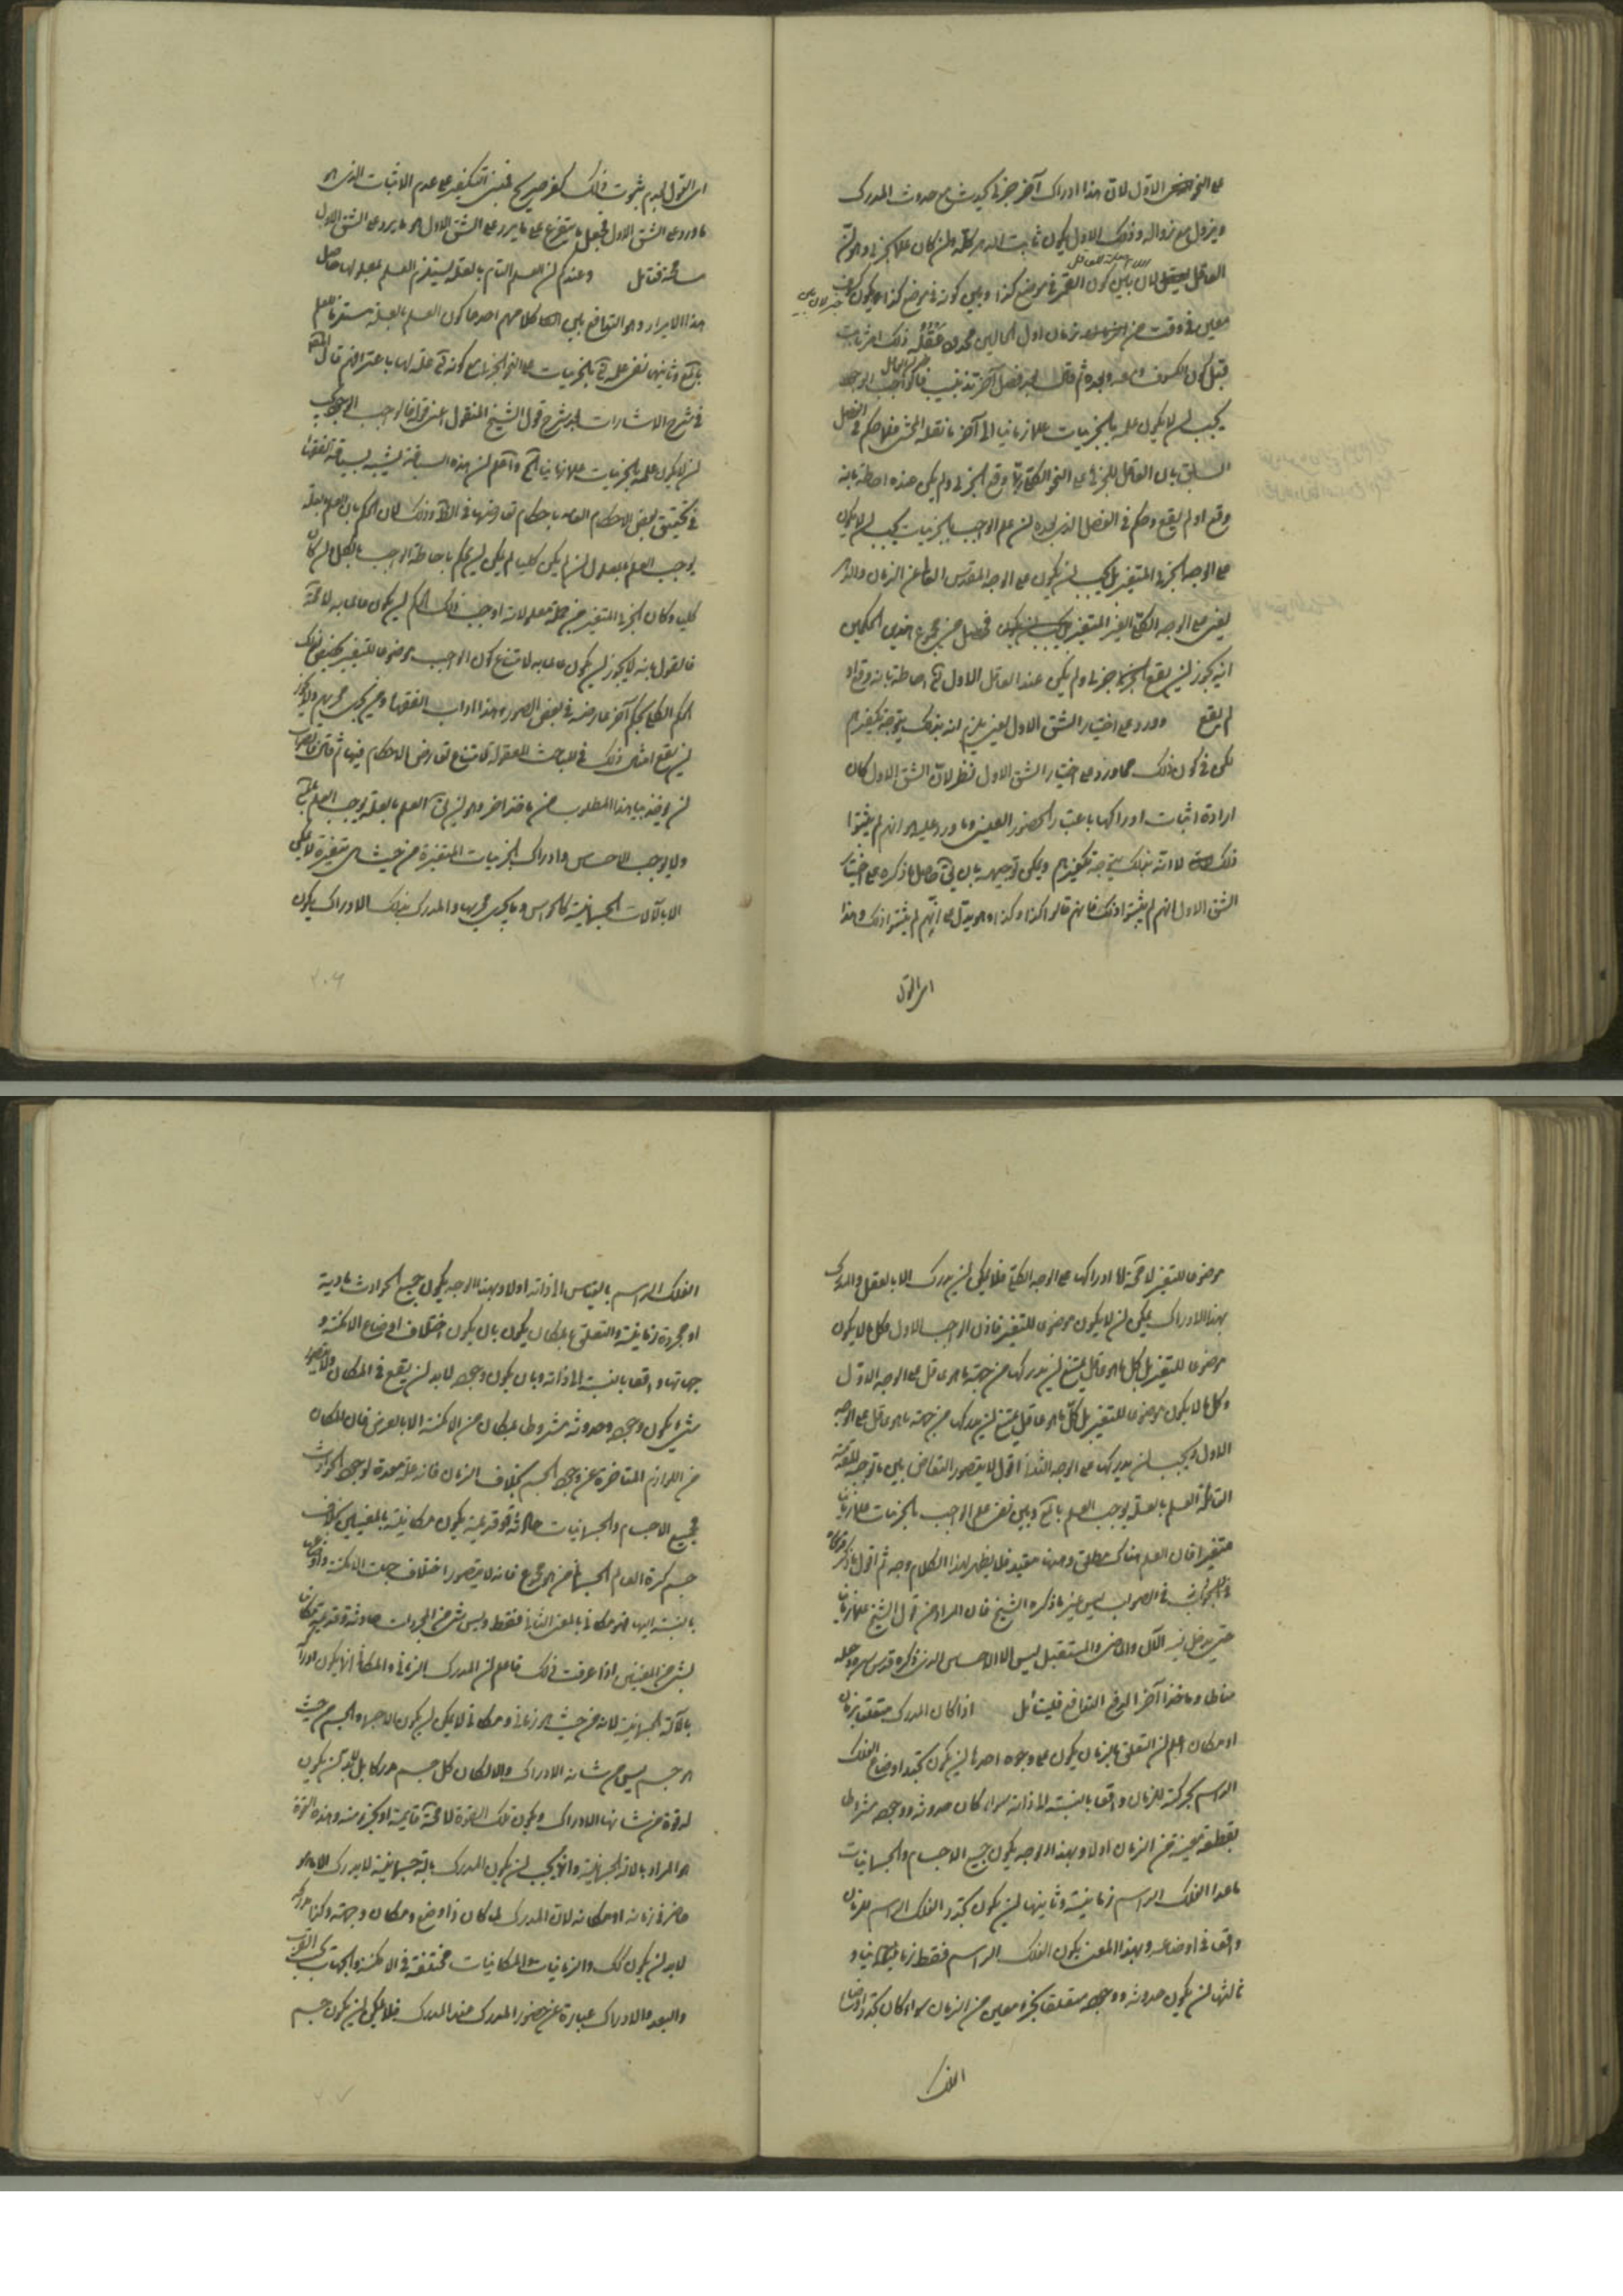 على النحو الاول لان هذا ادراك آخر جزئى يحدث مع حدوث المدرك
ويزول مع زواله وذلك الاول يكون ثابت الدهر كله وان كان علما بجزئى وهو ان
العاقل لان بين كون القمر فى موضع كذا وبين كونه فى موضع كذا يكون كسوف
معين فى وقت من زمان اول الحالين محدود عقله ذلك امر ثابت
قبل كون الكسوف ومعه وبعده ثم قال بعد فصل آخر تذنيب فالواجب الوجود
يجب ان لا يكون علمه بالجزئيات علما زمانيا الى آخر ما نقله المحشى فقد حكم فى الفصل
السابق بان العاقل للجزئى على النحو الكلى ربما وقع الجزئى ولم يكن عنده احاطة بانه
وقع او لم يقع وحكم فى الفصل الذى بعده ان علم الواجب بالجزئيات يجب ان لا يكون
على الوجه الجزئى المتغير بل يجب ان يكون على الوجه المقدس العالى عن الزمان والدهر
يعنى على الوجه الكلى الغير المتغير فحصل من مجموع هذين الحكمين
انه يجوز ان يقع جزئى ولم يكن عند العاقل الاول تع احاطة بانه وقع او
لم يقع وورد على اختيار الشق الاول يعنى يلزم انه بذلك يتوجه تكفيرهم
لكن فى كون ذلك مما ورد على اختيار الشق الاول نظر لان الشق الاول كان
ارادة اثبات ادراكها باعتبار الحضور العينى وما ورد عليه هو انهم لم يثبتوا
ذلك لا انه بذلك يتوجه تكفيرهم ويمكن توجيهه بان يق حاصل ما ذكره على اختيار
الشق الاول انهم لم يثبتوا ذلك فانهم قالوا كذا وكذا وهو يدل على انهم لم يثبتوا ذلك وهذا
اى القول
اى القول بعدم ثبوت ذلك كفر صريح فبنى التكفير على عدم الاثبات الذى هو
ما ورد على الشق الاول فجعل ما يتفرع على ما يرد على الشق الاول هو ما يرد على الشق الاول
مسامحة فتامل وعندكم ان العلم التام بالعلة يستلزم العلم بمعلولها حاصل
هذا الايراد هو التدافع بين كلامهم احدهما كون العلم بالعلة مستلزما للعلم
بالمع وثانيهما نفى علمه تع بالجزئيات على النحو الجزئى مع كونه تع علة لها باعترافهم قال المحقق
فى شرح الاشارات بعد شرح قول الشيخ المنقول اعنى قوله فالواجب الوجود يجب
ان لا يكون علمه بالجزئيات علما زمانيا الخ واعلم ان هذه السياقة يشبه سياقة الفقهاء
فى تخصيص بعض الاحكام العامة باحكام تعارضها فى الظ وذلك لان الحكم بان العلم بالعلة
يوجب العلم بالمعلول ان لم يكن كليا لم يكن ان يحكم باحاطة الواجب بالكل وان كان
كليا وكان الجزئى المتغير من جملة معلولاته اوجب ذلك الحكم ان يكون عالما به لا محالة
فالقول بانه لا يجوز ان يكون عالما به لامتناع كون الواجب موضوعا للتغير تخصيص لذلك
الحكم الكلى بحكم آخر عارضه فى بعض الصور وهذا دأب الفقهاء ومن يجرى مجريهم ولا يجوز
ان يقع امثال ذلك فى المباحث المعقولة لامتناع تعارض الاحكام فيها ثم قال فالصواب
ان يؤخذ بيان هذا المطلوب من ماخذ آخر وهو ان يق العلم بالعلة يوجب العلم بالمع
ولا يوجب الاحساس وادراك الجزئيات المتغيرة من حيث هى متغيرة لا يمكن
الا بالآلات الجسمانية كالحواس وما يجرى مجريها والمدرك بذلك الادراك يكون
۲۰۶
موضوعا للتغير لا محالة اما ادراكها على الوجه الكلى فلا يمكن ان يدرك الا بالعقل والمدرك
بهذا الادراك يمكن ان لا يكون موضوعا للتغير فاذن الواجب الاول وكل ما لا يكون
موضوعا للتغير بل كل ما هو عاقل يمتنع ان يدركها من جهة ما هو عاقل على الوجه الاول
وكل ما لا يكون موضوعا للتغير بل كل ما هو عاقل يمتنع ان يدركها من جهة ما هو عاقل على الوجه
الاول ويجب ان يدركها على الوجه الثانى اقول لا يتصور التناقض بين ما توجه للمقدمة
القائلة العلم بالعلة يوجب العلم بالمع وبين نفى علم الواجب بالجزئيات علما زمانيا
متغيرا فان العلم هناك مطلق وههنا مقيد فلا يظهر لهذا الكلام وجه ثم اقول ما ذكره
فى الصواب ليس غير ما ذكره الشيخ فان المراد من قول الشيخ علما زمانيا
حتى يدخل فيه الآن والماضى والمستقبل ليس الا الاحساس الذى ذكره قدس سره وجعله
مناطا وماخذا آخر لدفع التدافع فليتامل اذا كان المدرك متعلقا بزمان
او مكان اعلم ان التعلق بالزمان يكون على وجوه احدها ان يكون تجدد اوضاع الفلك
الراسم بحركته للزمان واقعا بالنسبة الى ذاته سواء كان حدوثه ووجوده مشروطا
بقطعة معينة من الزمان اولا وبهذا الوجه يكون جميع الاجسام والجسمانيات
ما عدا الفلك الراسم زمانية وثانيها ان يكون تجدد الفلك الراسم للزمان
واقعا فى اوضاعه وبهذا المعنى يكون الفلك الراسم فقط زمانيا و
ثالثها ان يكون حدوثه ووجوده متعلقا بجزء معين من الزمان سواء كان تجدد اوضاع
الفلك
الفلك الراسم بالقياس الى ذاته اولا وبهذا الوجه يكون جميع الحوادث مادية
او مجردة زمانية والتعلق بالمكان يكون بان يكون اختلاف اوضاع الامكنة و
جهاتها واقعا بالنسبة الى ذاته وبان يكون وجوده لابد ان يقع فى المكان ولا يتصور
شئ يكون وجوده وحدوثه مشروطا بمكان من الامكنة الا بالعرض فان المكان
من اللوازم المتاخرة عن وجود الجسم بخلاف الزمان فانه علة معدة لوجود الحوادث
فجميع الاجسام والجسمانيات حادثة او قديمة يكون مكانية بالمعنيين بخلاف
جسم كرة العالم الجسمانى من هو مجموع فانه لا يتصور اختلاف جهات الامكنة واوضاعها
بالنسبة اليها فهو مكانى بالمعنى الثانى فقط وليس شئ من المجردات حادثة وقديمة مكانيا
بشئ من المعنيين اذا عرفت ذلك فاعلم ان المدرك الزمانى والمكانى انما يكون ادراكه
بالآلة الجسمانية لانه من حيث هو زمانى ومكانى لا يمكن ان يكون الا جسما والجسم من حيث
هو جسم ليس من شانه الادراك والا لكان كل جسم مدركا بل لابد ان يكون
له قوة من شانها الادراك ويكون تلك القوة لا محالة قائمة او بجزء منه وهذه القوة
هو المراد بالآلة الجسمانية وانما يجب ان يكون المدرك بآلة جسمانية لا يدرك الا ما هو
حاضر فى زمانه او مكانه لان المدرك لما كان ذا وضع ومكان وجهة وكذا مدركه
لابد ان يكون كك والزمانيات والمكانيات مختلفة فى الامكنة والجهات بحسب القرب
والبعد والادراك عبارة عن حضور المدرك عند المدرك فلا يمكن ان يكون جسم